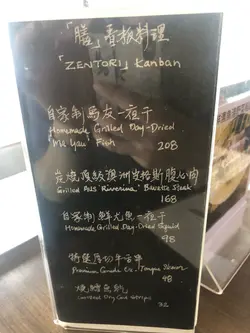 「膳」看板料理
「ZENTORI」Kanban
自家制馬友一夜干
Homemade Grilled Day-Dried
"Ma Yau" Fish
208
炭燒頂級澳洲安格斯腹心肉
Grilled Aus 'Riverina' Bavette Steak
168
自家制鮮尤魚一夜干
Homemade Grilled Day-Dried Squid
98
特選厚切牛舌串
Premium Grade Ox-Tongue Skewer
48
燒鱔魚乾
Grilled Dry Cod Strips
32